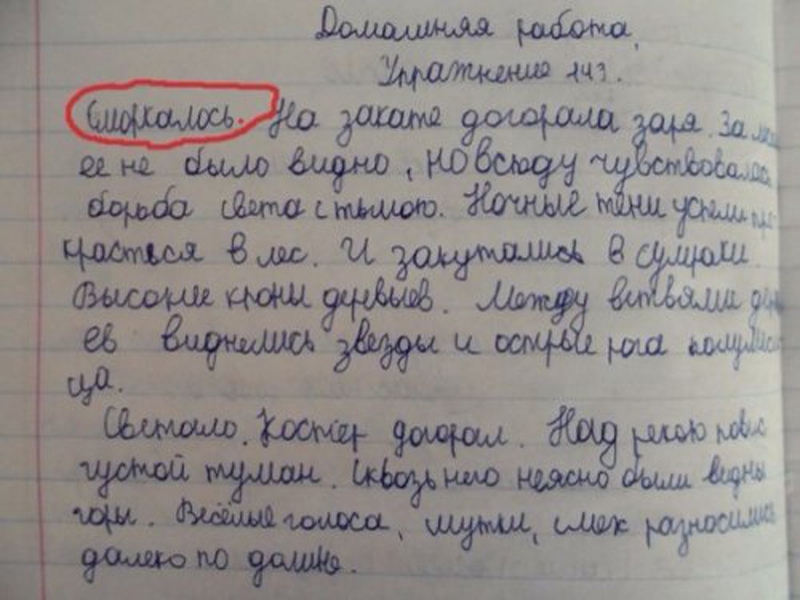 Домашняя работа.
Упражнение 143.
Сморкалось. На закате догорала заря. За
ее не было видно, но всюду чувствовалась
борьба света с тьмою. Ночные тени успели про
красться в лес. И закутались в сумраки.
Высокие крони деревыев. Между ветвями дер
ев виднелись звезды и острые рога полумеся
ца.
Светало. Костер догорал. Над рекою повис
густой туман. Сквозь него неясно были видны
горы. Весёлые голоса, шутки, смех разносились
далеко по долине.